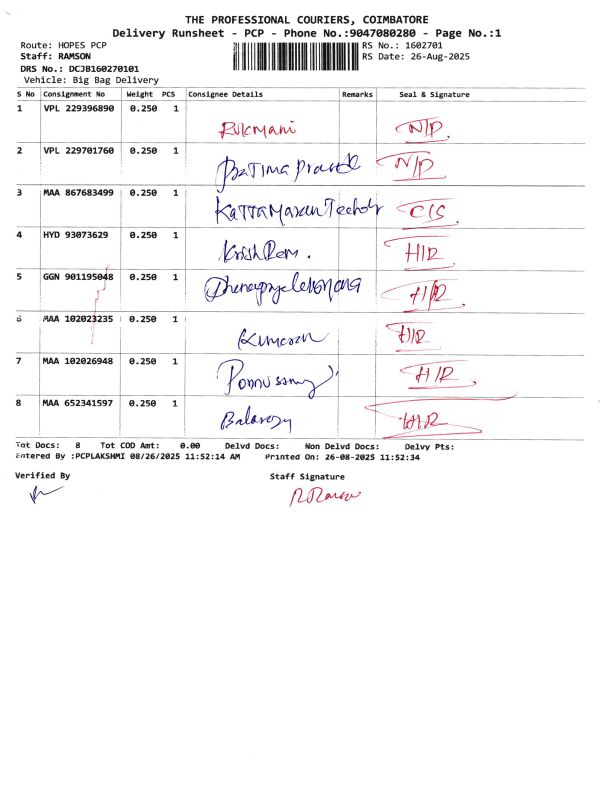 THE PROFESSIONAL COURIERS, COIMBATORE
Delivery Runsheet - PCP - Phone No.:9047080280 - Page No.:1
Route: HOPES PCP RS No.: 1602701
Staff: RAMSON RS Date: 26-Aug-2025
DRS No.: DCJB160270101
Vehicle: Big Bag Delivery
S No Consignment No Weight PCS Consignee Details Remarks Seal & Signature
1 VPL 229396890 0.250 1 Rukmani N/P.
2 VPL 229701760 0.250 1 N/P
3 MAA 867683499 0.250 1 C/S
4 HYD 93073629 0.250 1 Krish Ram. H/R
5 GGN 901195048 0.250 1 H/R
6 MAA 102023235 0.250 1 Kumaran H/R
7 MAA 102026948 0.250 1 Ponnusamy H/R
8 MAA 652341597 0.250 1 H/R
Tot Docs: 8 Tot COD Amt: 0.00 Delvd Docs: Non Delvd Docs: Delvy Pts:
Entered By :PCPLAKSHMI 08/26/2025 11:52:14 AM Printed On: 26-08-2025 11:52:34
Verified By Staff Signature